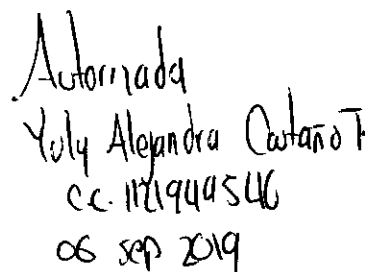 Autorizada
Yuly Alejandra Castaño T.
CC. 1121949546
06 sep 2019